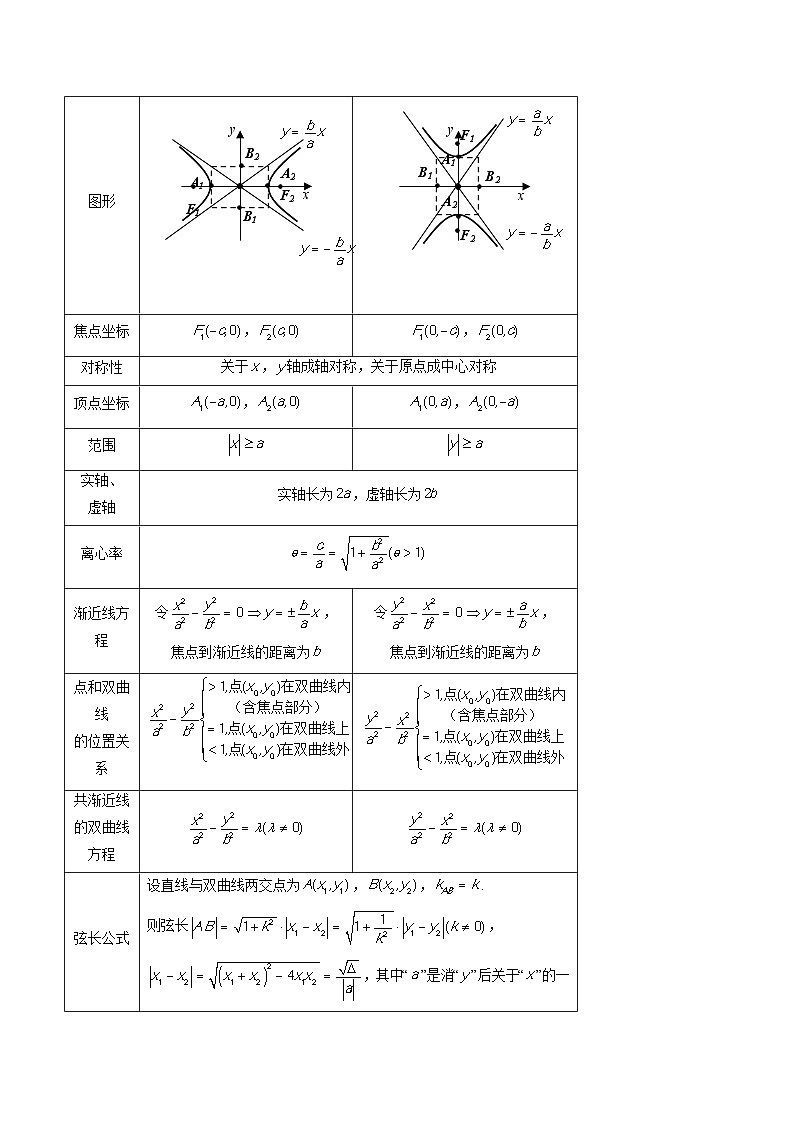 图形
y
y = b/a x
B2
A1
A2
F1
F2
x
B1
y = − b/a x
y
y = a/b x
F1
A1
B1
B2
x
A2
F2
y = − a/b x
焦点坐标
F₁(−c,0)，F₂(c,0)
F₁(0,−c)，F₂(0,c)
对称性
关于x，y轴成轴对称，关于原点成中心对称
顶点坐标
A₁(−a,0)，A₂(a,0)
A₁(0,a)，A₂(0,−a)
范围
|x| ≥ a
|y| ≥ a
实轴、
虚轴
实轴长为2a，虚轴长为2b
离心率
e = c/a = √(1 + b²/a²) (e > 1)
渐近线方
程
令 x²/a² − y²/b² = 0 ⇒ y = ± b/a x，
焦点到渐近线的距离为b
令 y²/a² − x²/b² = 0 ⇒ y = ± a/b x，
焦点到渐近线的距离为b
点和双曲
线
的位置关
系
x²/a² − y²/b²
> 1,点(x₀,y₀)在双曲线内
（含焦点部分）
= 1,点(x₀,y₀)在双曲线上
< 1,点(x₀,y₀)在双曲线外
y²/a² − x²/b²
> 1,点(x₀,y₀)在双曲线内
（含焦点部分）
= 1,点(x₀,y₀)在双曲线上
< 1,点(x₀,y₀)在双曲线外
共渐近线
的双曲线
方程
x²/a² − y²/b² = λ(λ ≠ 0)
y²/a² − x²/b² = λ(λ ≠ 0)
弦长公式
设直线与双曲线两交点为A(x₁,y₁)，B(x₂,y₂)，k_AB = k.
则弦长|AB| = √(1+k²) · |x₁ − x₂| = √(1 + 1/k²) · |y₁ − y₂|(k ≠ 0)，
|x₁ − x₂| = √((x₁ + x₂)² − 4x₁x₂) = √Δ/|a|，其中“a”是消“y”后关于“x”的一